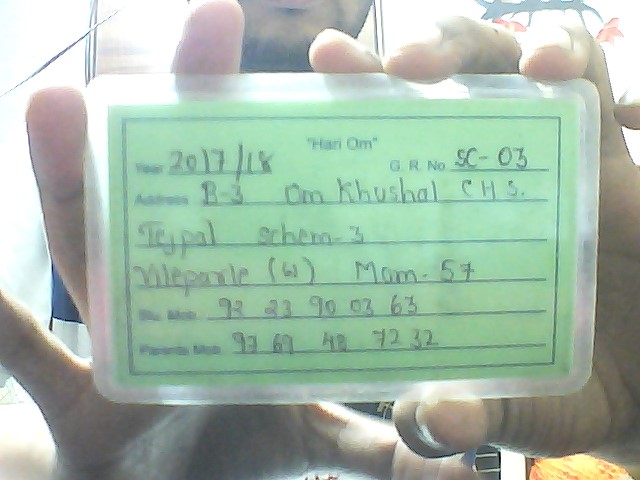 "Hari Om"
Year 2017/18 G. R. No SC- 03
Address B-3 Om Khushal C H S.
Tejpal schem-3
Vileparle (W) Mum-57
Stu. Mob. 92 23 90 03 63
Parents Mob 97 69 48 72 32